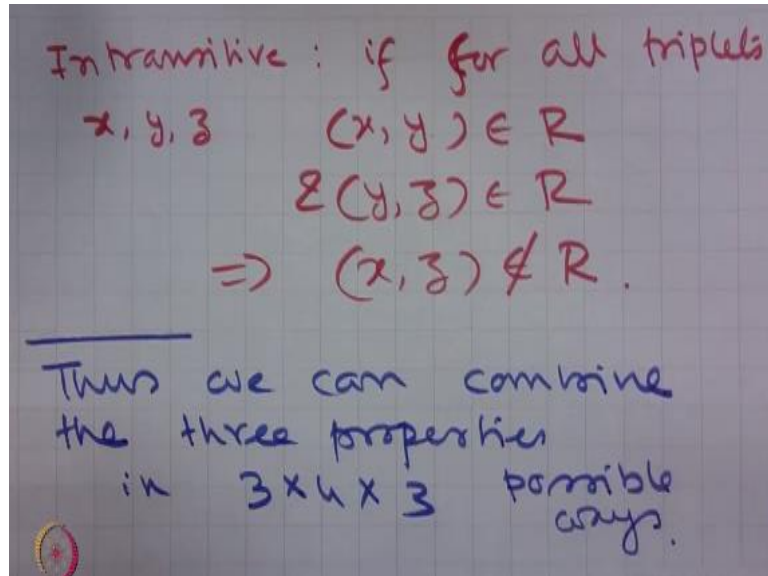 Intransitive : if for all triplets
x, y, z (x, y) ∈ R
& (y, z) ∈ R
=> (x, z) ∉ R.
Thus we can combine
the three properties
in 3 × 4 × 3 possible
ways.